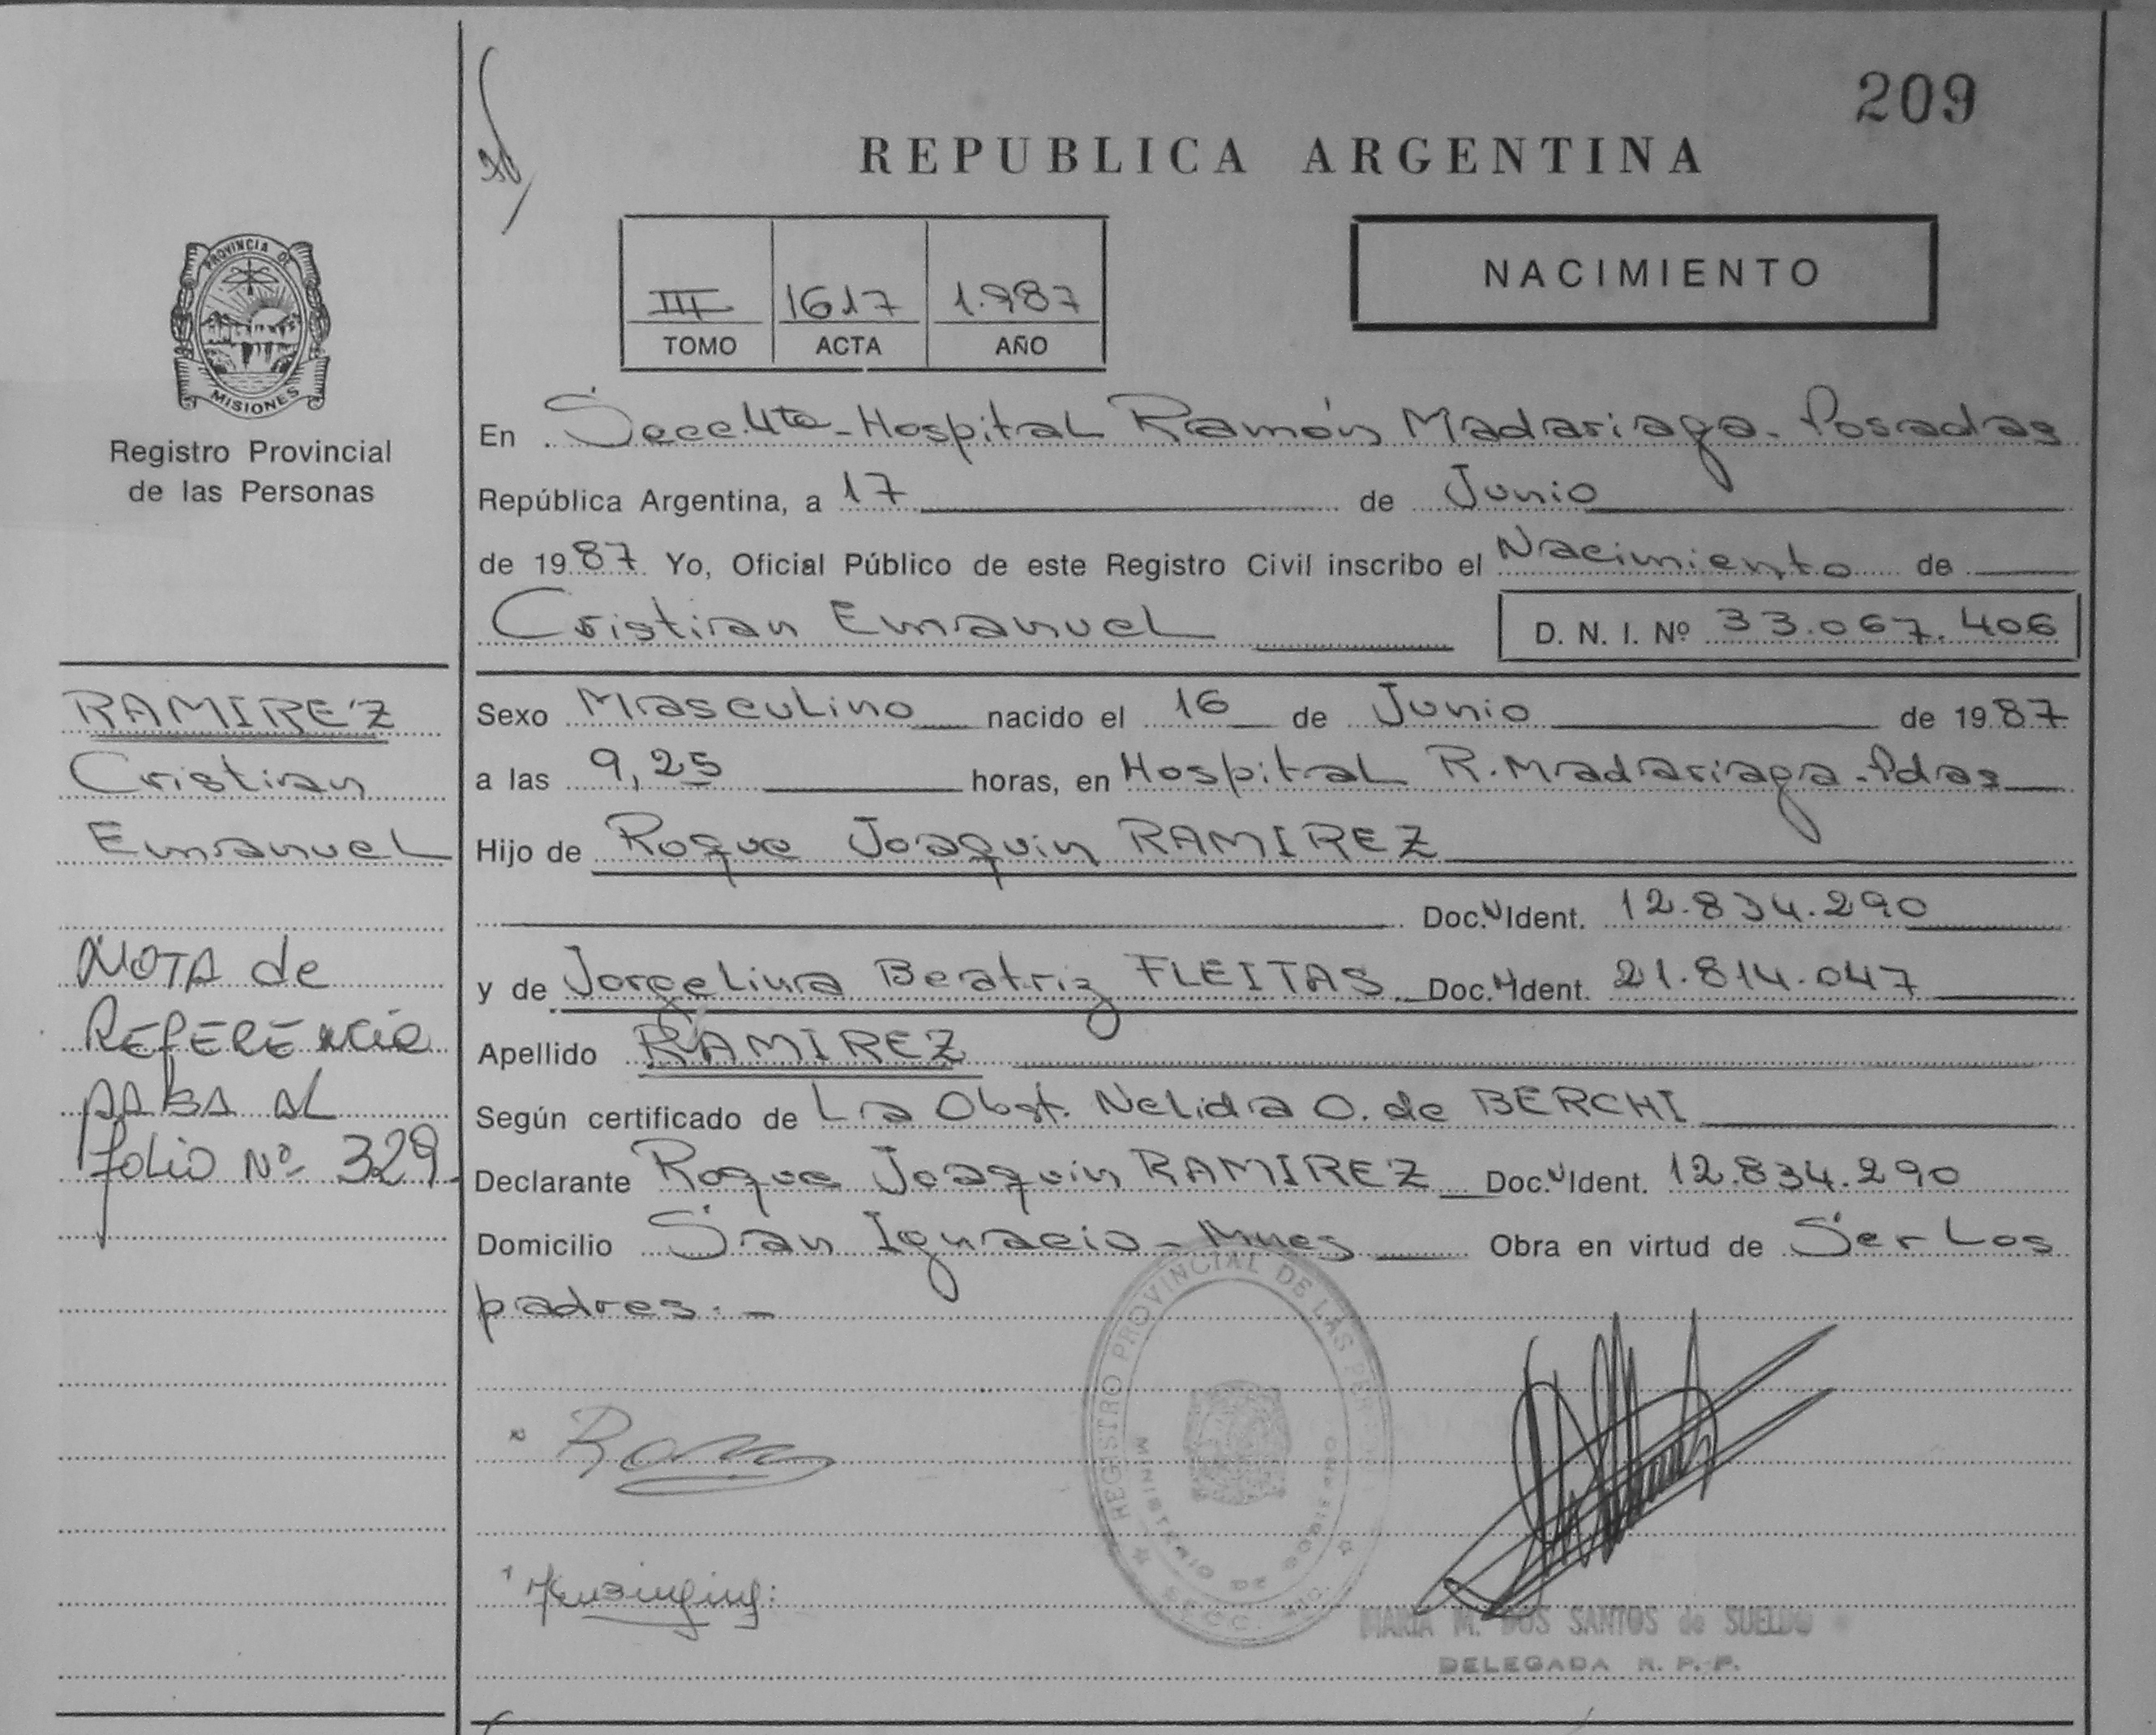 209
REPUBLICA ARGENTINA
III 1617 1.987
TOMO ACTA AÑO
NACIMIENTO
PROVINCIA DE
MISIONES
Registro Provincial
de las Personas
En Secc.4ta-Hospital Ramón Madariaga-Posadas
República Argentina, a 17 de Junio
de 1987 Yo, Oficial Público de este Registro Civil inscribo el Nacimiento de
Cristian Emanuel D. N. I. Nº 33.067.406
RAMIREZ
Cristian
Emanuel
NOTA de
REFERENCIA
PASA AL
folio Nº 329
Sexo Masculino nacido el 16 de Junio de 1987
a las 9,25 horas, en Hospital R. Madariaga-Pdas
Hijo de Roque Joaquin RAMIREZ
Doc. Ident. 12.834.290
y de Jorgelina Beatriz FLEITAS Doc. Ident. 21.814.047
Apellido RAMIREZ
Según certificado de La Obst. Nelida O. de BERCHI
Declarante Roque Joaquin RAMIREZ Doc. Ident. 12.834.290
Domicilio San Ignacio-Mnes Obra en virtud de Ser Los
padres.-
REGISTRO PROVINCIAL DE LAS
MINISTERIO DE
MARIA M. DOS SANTOS de SUELDO
DELEGADA R. P. P.